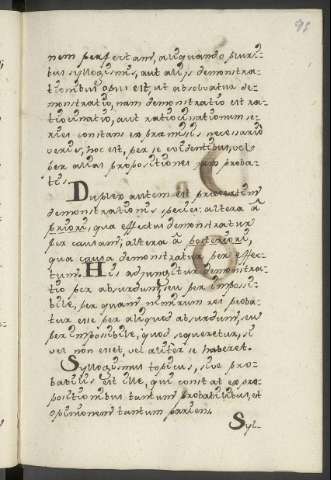 95
nem perfectam, aliquando pluri-
bus syllogismis, aut alijs demonstra-
tionibus opus est, ut absolvatur de-
monstratio, nam demonstratio est ra-
tiocinatio, aut ratiocinationum se-
ries constans ex præmissis necessario
veris, hoc est, per se evidentibus, vel
per alias propositiones jam proba-
tis.
Duplex autem est præterea
demonstrationis species: altera à
priori, qua effectus demonstratur
per causam, altera à posteriori,
qua causa demonstratur per effec-
tum. His adjungitur demonstra-
tio per absurdum, seu per impossi-
bile, per quam nimirum rei proba-
tur esse per aliquod absurdum, seu
per impossibile, quod sequeretur, si
vel non esset, vel aliter se haberet.
Syllogismus topicus, sive pro-
babilis est ille, qui constat ex pro-
positionibus tantum probabilibus, et
opinionem tantum parien.
Syl-